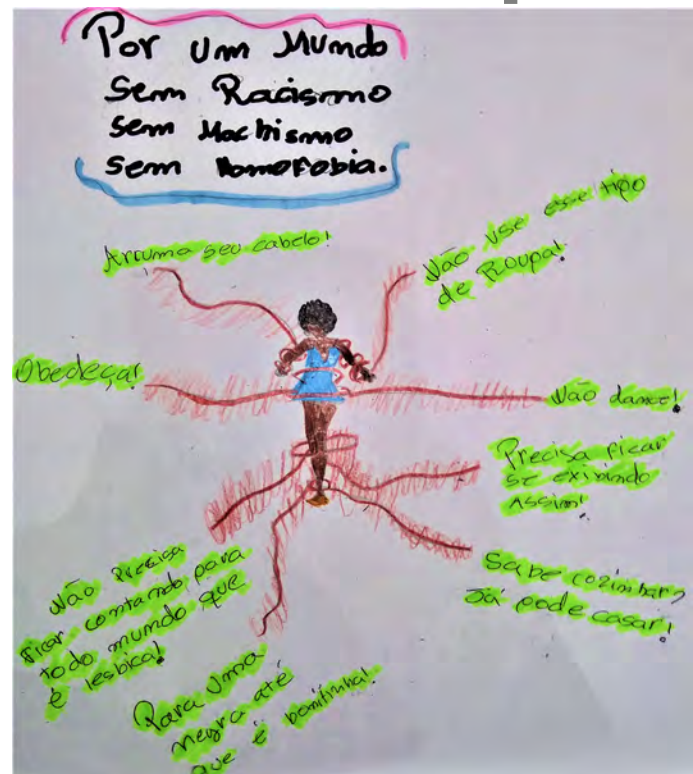 Por um Mundo
Sem Racismo
sem Machismo
sem Homofobia.
Arruma seu cabelo!
Não use esse tipo
de Roupa!
Obedeça!
Não dance!
Precisa ficar
se exibindo
Assim!
Sabe cozinhar?
Já pode casar!
Não Precisa
ficar contando para
todo mundo que
é lesbica!
Para uma
negra até
que é bonitinha!